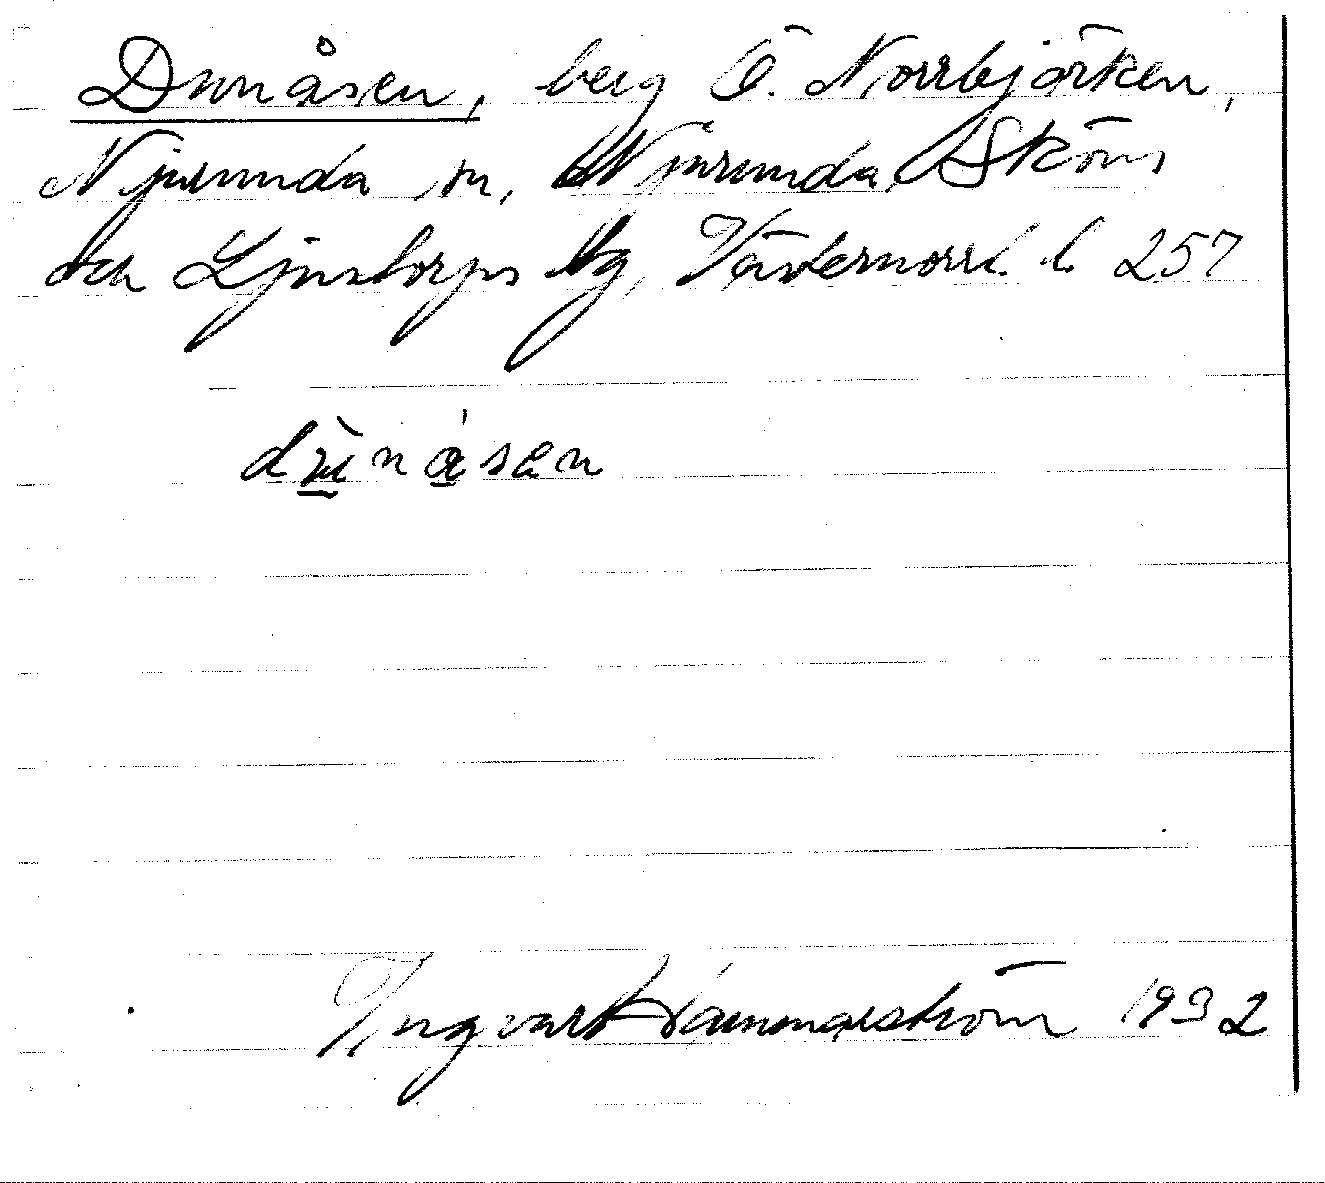 Dunåsen, berg Ö. Norrbjörken,
Njurunda sn, Njurunda, Sköns
och Ljustorps tg, Västernorrl. l. 257
dùnásen
Ingvart Hammarström 1932